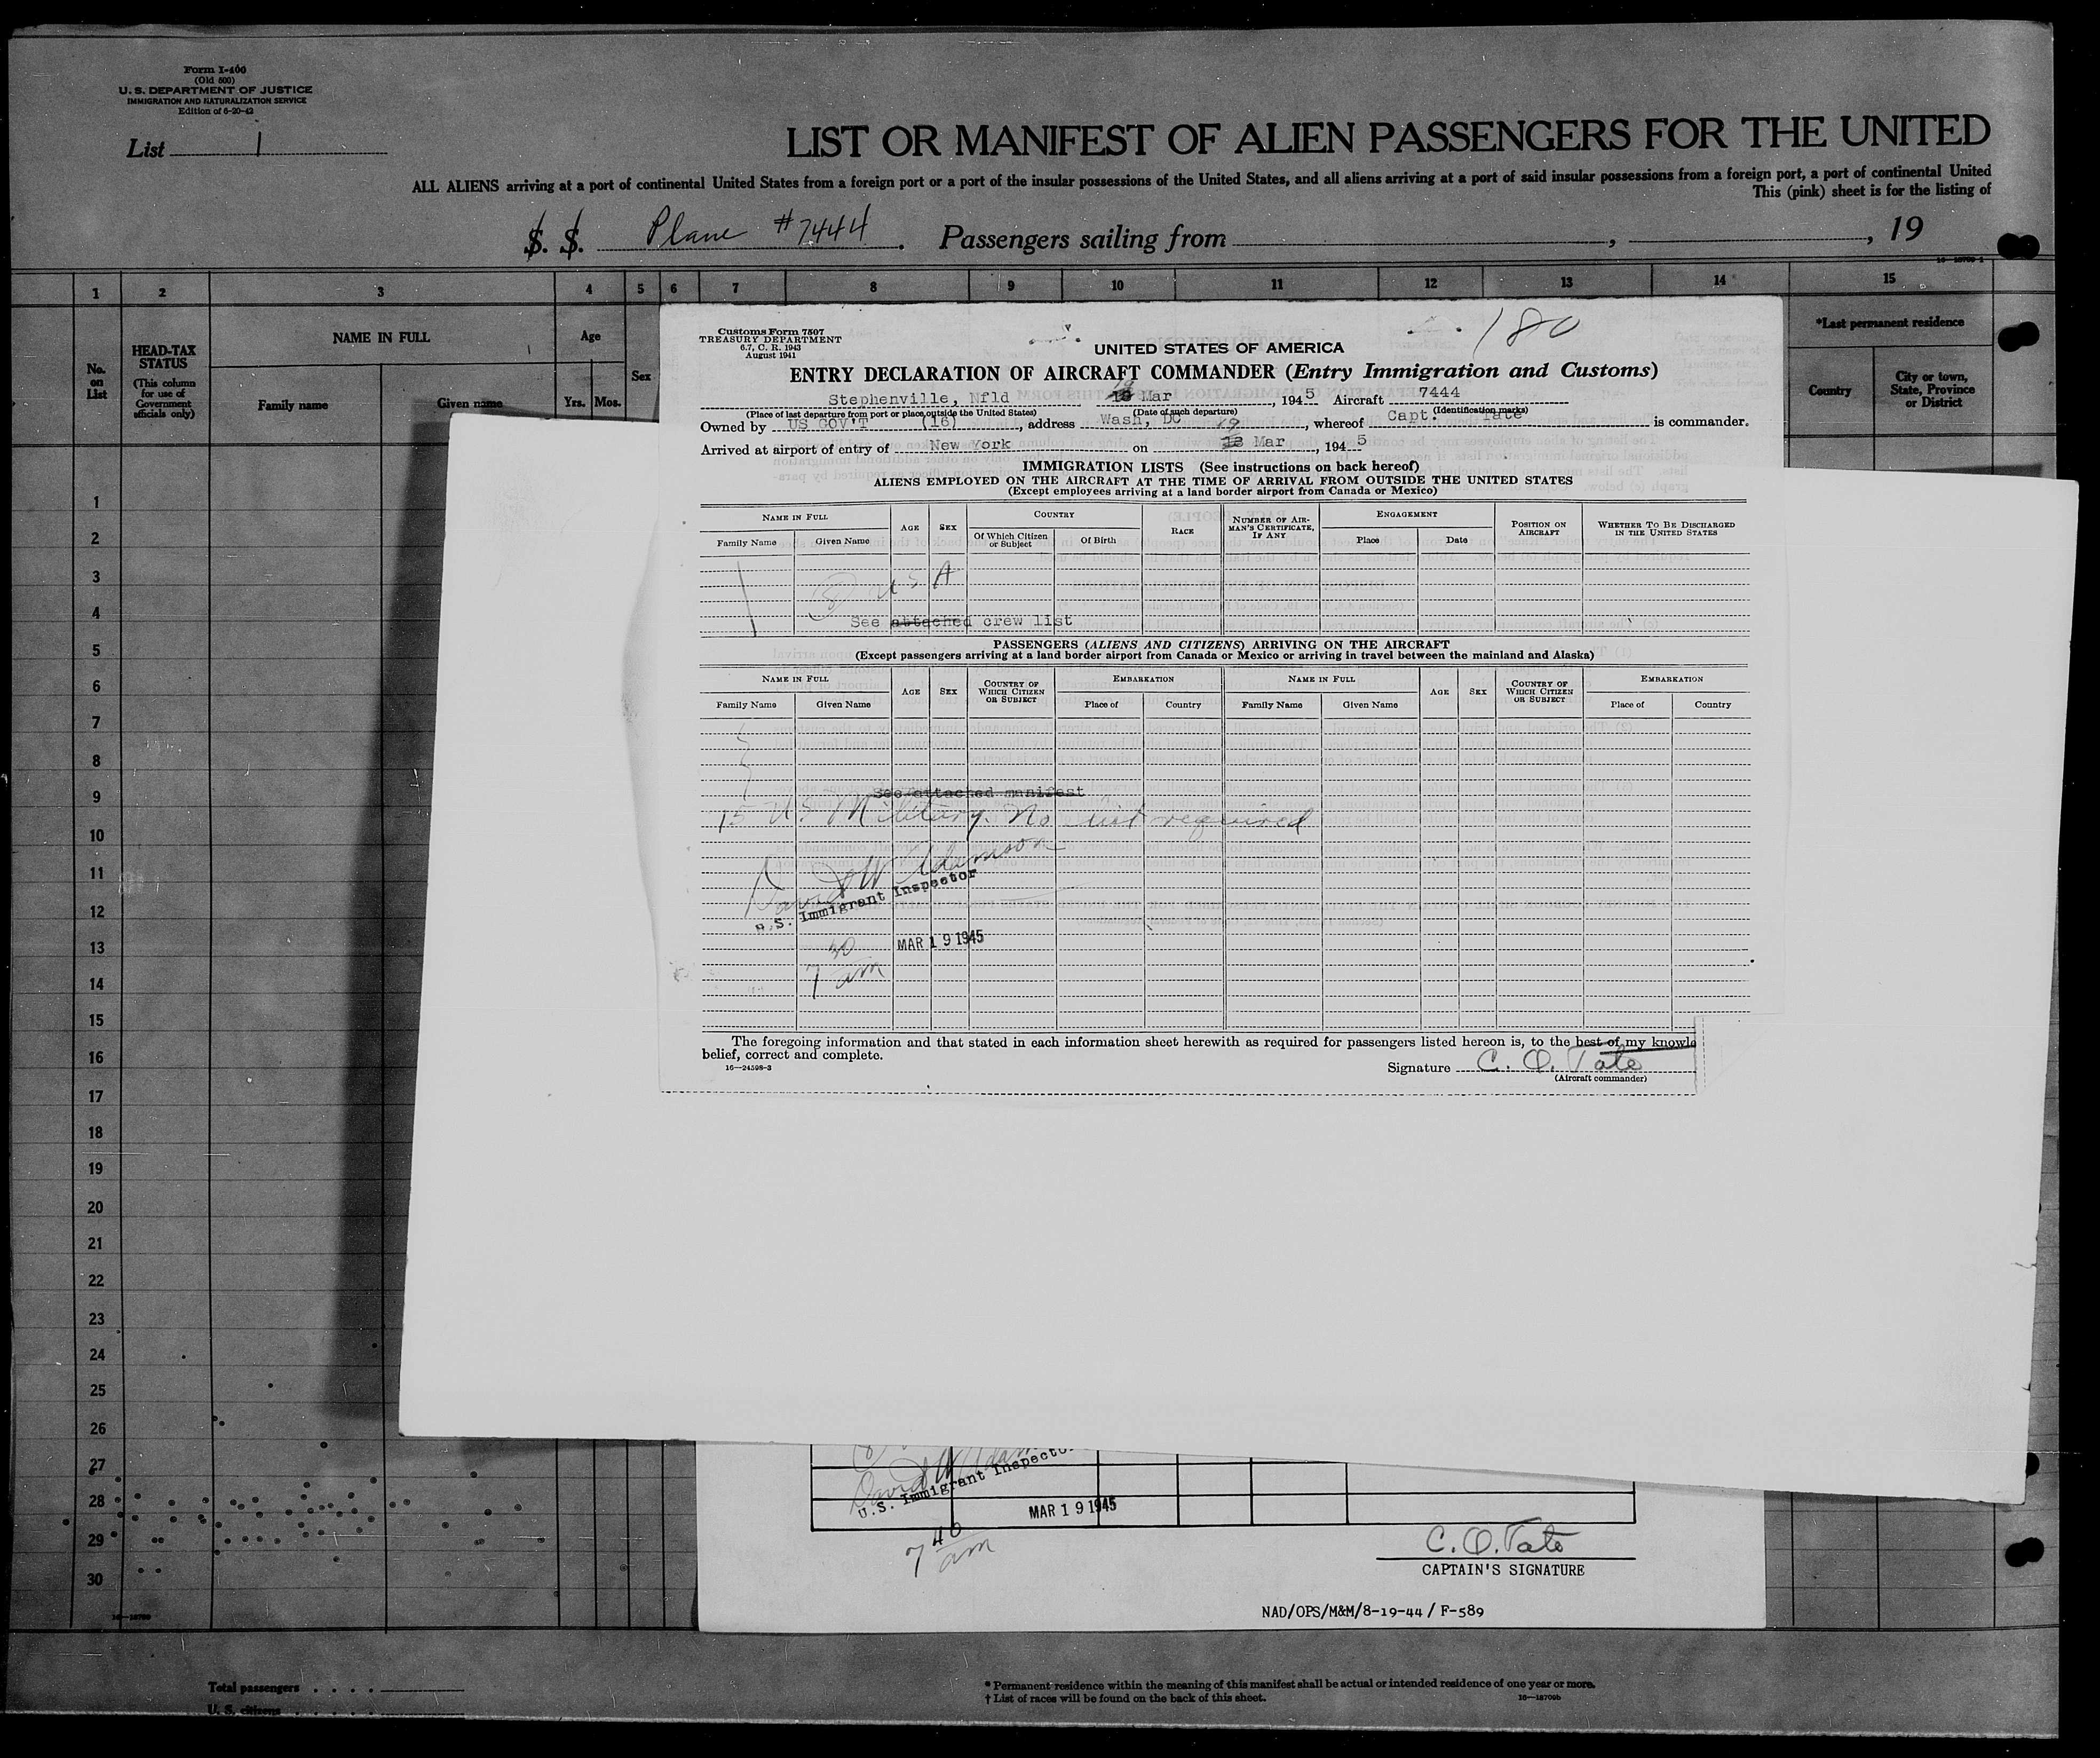 Form I-400
(Old 500)
U. S. DEPARTMENT OF JUSTICE
IMMIGRATION AND NATURALIZATION SERVICE
Edition of 6-20-42
List 1
LIST OR MANIFEST OF ALIEN PASSENGERS FOR THE UNITED
ALL ALIENS arriving at a port of continental United States from a foreign port or a port of the insular possessions of the United States, and all aliens arriving at a port of said insular possessions from a foreign port, a port of continental United
This (pink) sheet is for the listing of
S. S. Plane #7444. Passengers sailing from , , 19
1 2 3 4 5 6 7 8 9 10 11 12 13 14 15
No. on List
HEAD-TAX STATUS
(This column for use of Government officials only)
NAME IN FULL
Family name Given name
Age
Yrs. Mos.
Sex
*Last permanent residence
Country
City or town, State, Province or District
Customs Form 7507
TREASURY DEPARTMENT
6.7, C. R. 1943
August 1941
180
UNITED STATES OF AMERICA
ENTRY DECLARATION OF AIRCRAFT COMMANDER (Entry Immigration and Customs)
Stephenville, Nfld 18 19 Mar , 1945 Aircraft 7444
(Place of last departure from port or place outside the United States) (Date of such departure) (Identification marks)
Owned by US GOV'T (16) , address Wash, DC , whereof Capt. Tate is commander.
Arrived at airport of entry of New York on 18 19 Mar , 1945
IMMIGRATION LISTS (See instructions on back hereof)
ALIENS EMPLOYED ON THE AIRCRAFT AT THE TIME OF ARRIVAL FROM OUTSIDE THE UNITED STATES
(Except employees arriving at a land border airport from Canada or Mexico)
NAME IN FULL AGE SEX COUNTRY RACE NUMBER OF AIRMAN'S CERTIFICATE, IF ANY ENGAGEMENT POSITION ON AIRCRAFT WHETHER TO BE DISCHARGED IN THE UNITED STATES
Family Name Given Name Of Which Citizen or Subject Of Birth Place Date
U S A
See attached crew list
PASSENGERS (ALIENS AND CITIZENS) ARRIVING ON THE AIRCRAFT
(Except passengers arriving at a land border airport from Canada or Mexico or arriving in travel between the mainland and Alaska)
NAME IN FULL AGE SEX COUNTRY OF WHICH CITIZEN OR SUBJECT EMBARKATION NAME IN FULL AGE SEX COUNTRY OF WHICH CITIZEN OR SUBJECT EMBARKATION
Family Name Given Name Place of Country Family Name Given Name Place of Country
See attached manifest
15 US Military. No list required
David W Adamson
U.S. Immigrant Inspector
MAR 19 1945
7 30 am
The foregoing information and that stated in each information sheet herewith as required for passengers listed hereon is, to the best of my knowle
belief, correct and complete.
16—24598-3
Signature C. O. Tate
(Aircraft commander)
1
2
3
4
5
6
7
8
9
10
11
12
13
14
15
16
17
18
19
20
21
22
23
24
25
26
27
28
29
30
David W Adam
U.S. Immigrant Inspector
MAR 19 1945
7 40 am
C. O. Tate
CAPTAIN'S SIGNATURE
NAD/OPS/M&M/8-19-44 / F-589
Total passengers . . . .
U. S. citizens . . . . .
* Permanent residence within the meaning of this manifest shall be actual or intended residence of one year or more.
† List of races will be found on the back of this sheet.
16—18709b